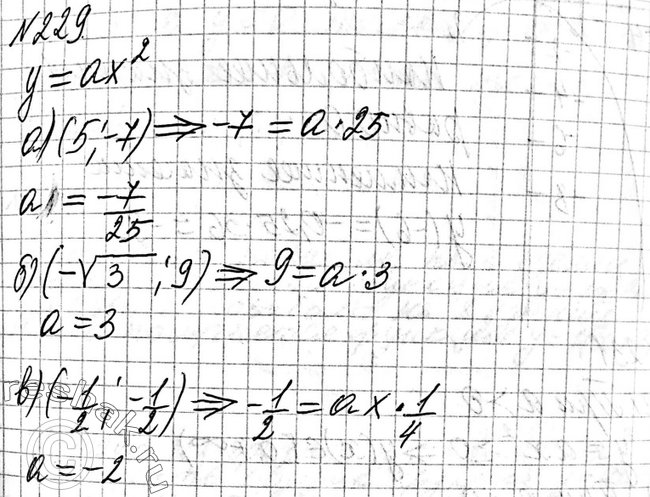 №229.
y = ax²
а) (5; -7) ⇒ -7 = a · 25
a = -7/25
б) (-√3; 9) ⇒ 9 = a · 3
a = 3
в) (-1/2; -1/2) ⇒ -1/2 = ax · 1/4
a = -2